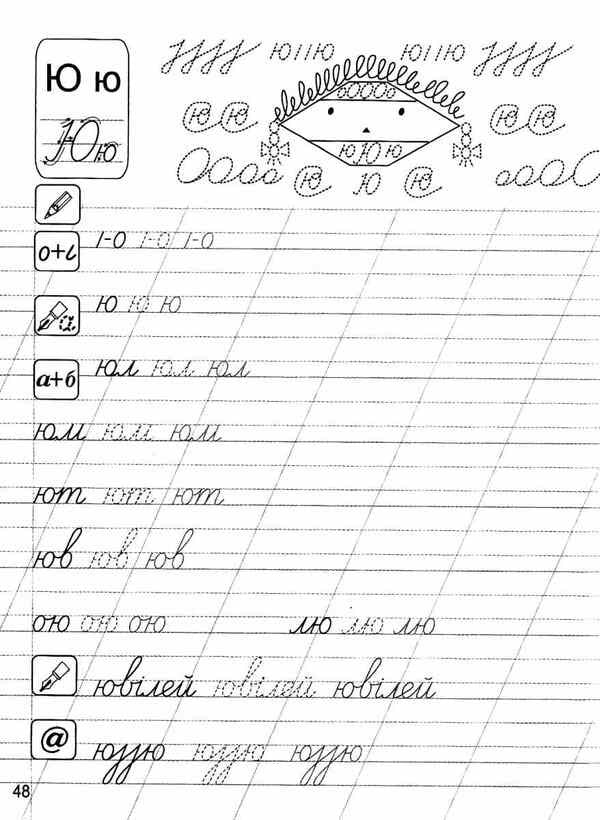 Ю ю
Юю
ю ю
ю ю
ю Ю ю
ю ю ю
о+і
І-О І-О І-О
а
ю ю ю
а+б
юл юл юл
юм юм юм
ют ют ют
юв юв юв
ою ою ою лю лю лю
ювілей ювілей ювілей
@
48